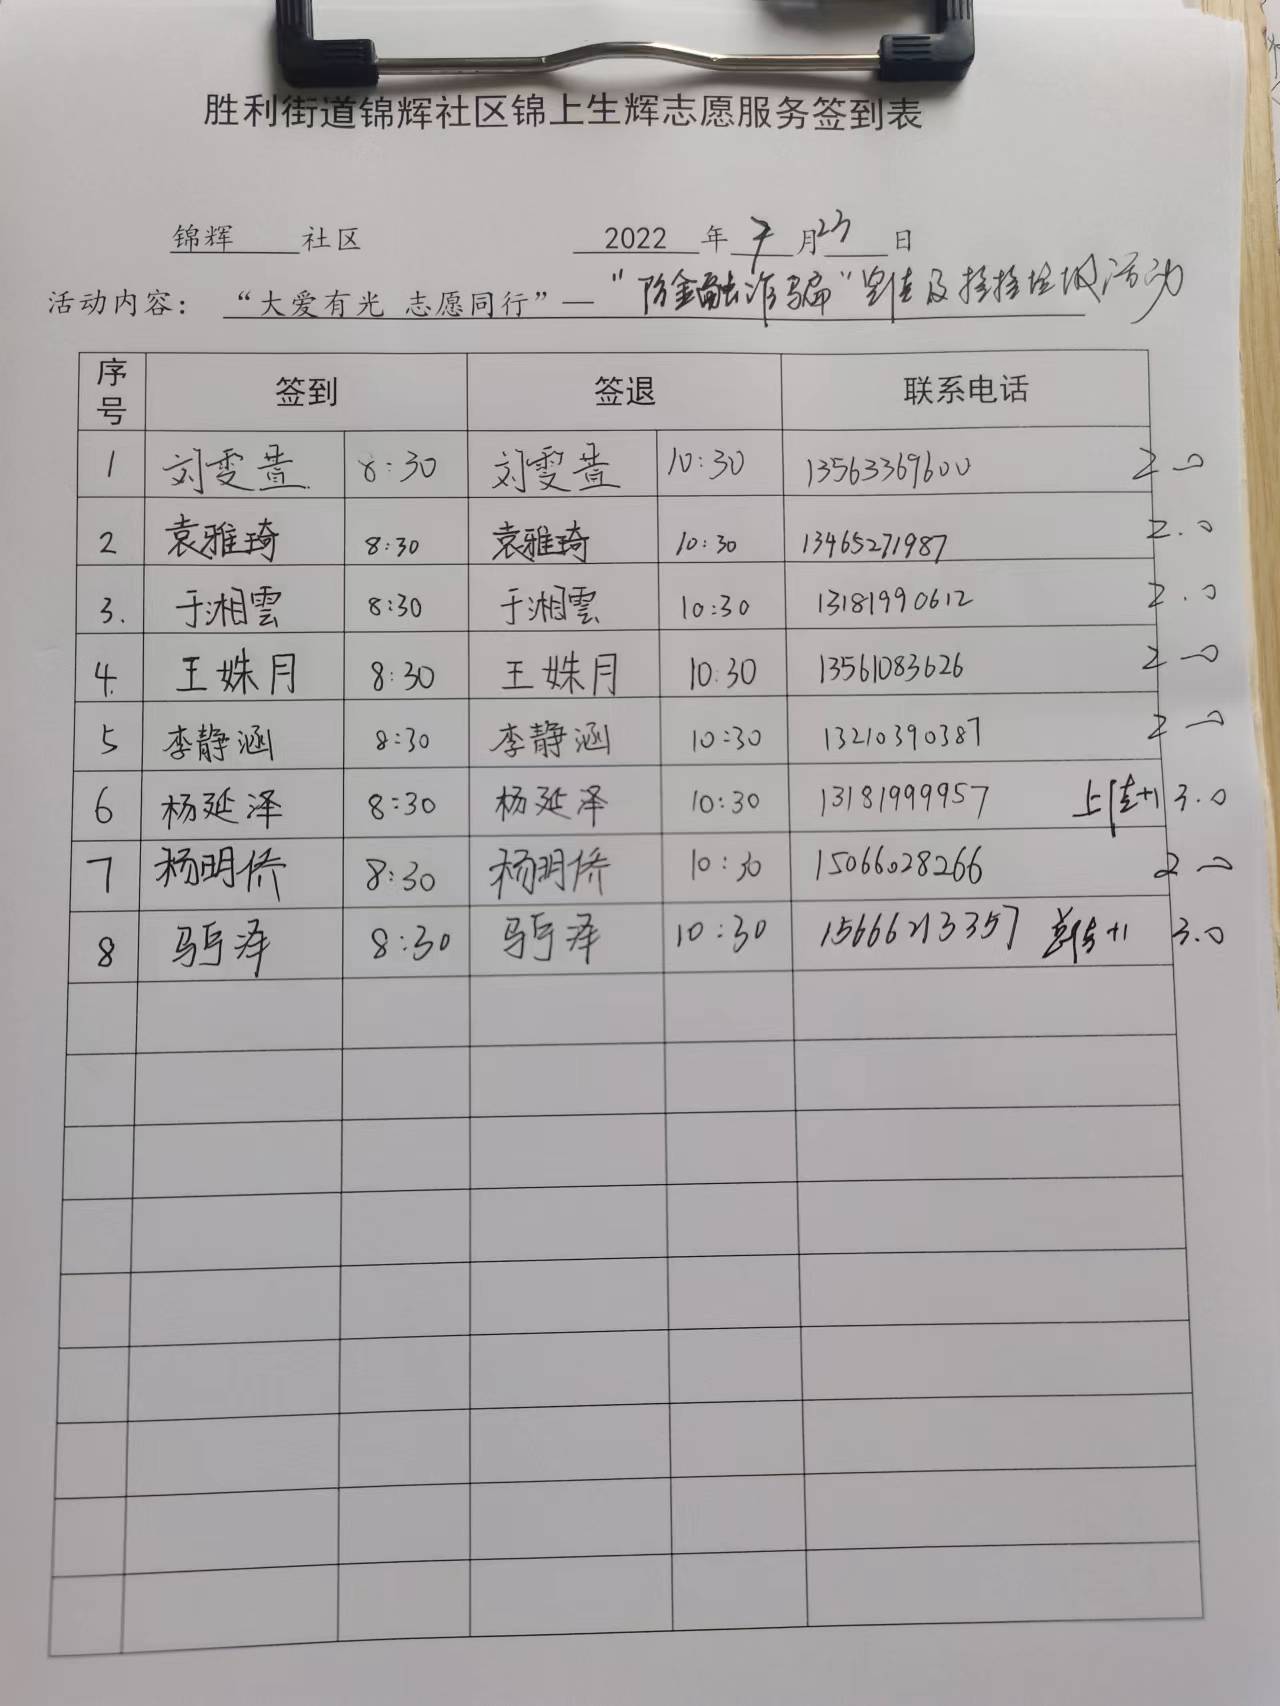 胜利街道锦辉社区锦上生辉志愿服务签到表
锦辉 社区 2022 年 7 月 23 日
活动内容： “大爱有光 志愿同行”—“防金融诈骗”宣传及捡拾垃圾活动
序号 签到 签退 联系电话
1 刘雯 8:30 刘雯 10:30 13563369600 2.0
2 袁雅琦 8:30 袁雅琦 10:30 13465271987 2.0
3. 于湘雲 8:30 于湘雲 10:30 13181990612 2.0
4. 王姝月 8:30 王姝月 10:30 13561083626 2.0
5 李静涵 8:30 李静涵 10:30 13210390387 2.0
6 杨延泽 8:30 杨延泽 10:30 13181999957 上传+1 3.0
7 杨明侨 8:30 杨明侨 10:30 15066028266 2.0
8 8:30 10:30 15666213357 +1 3.0